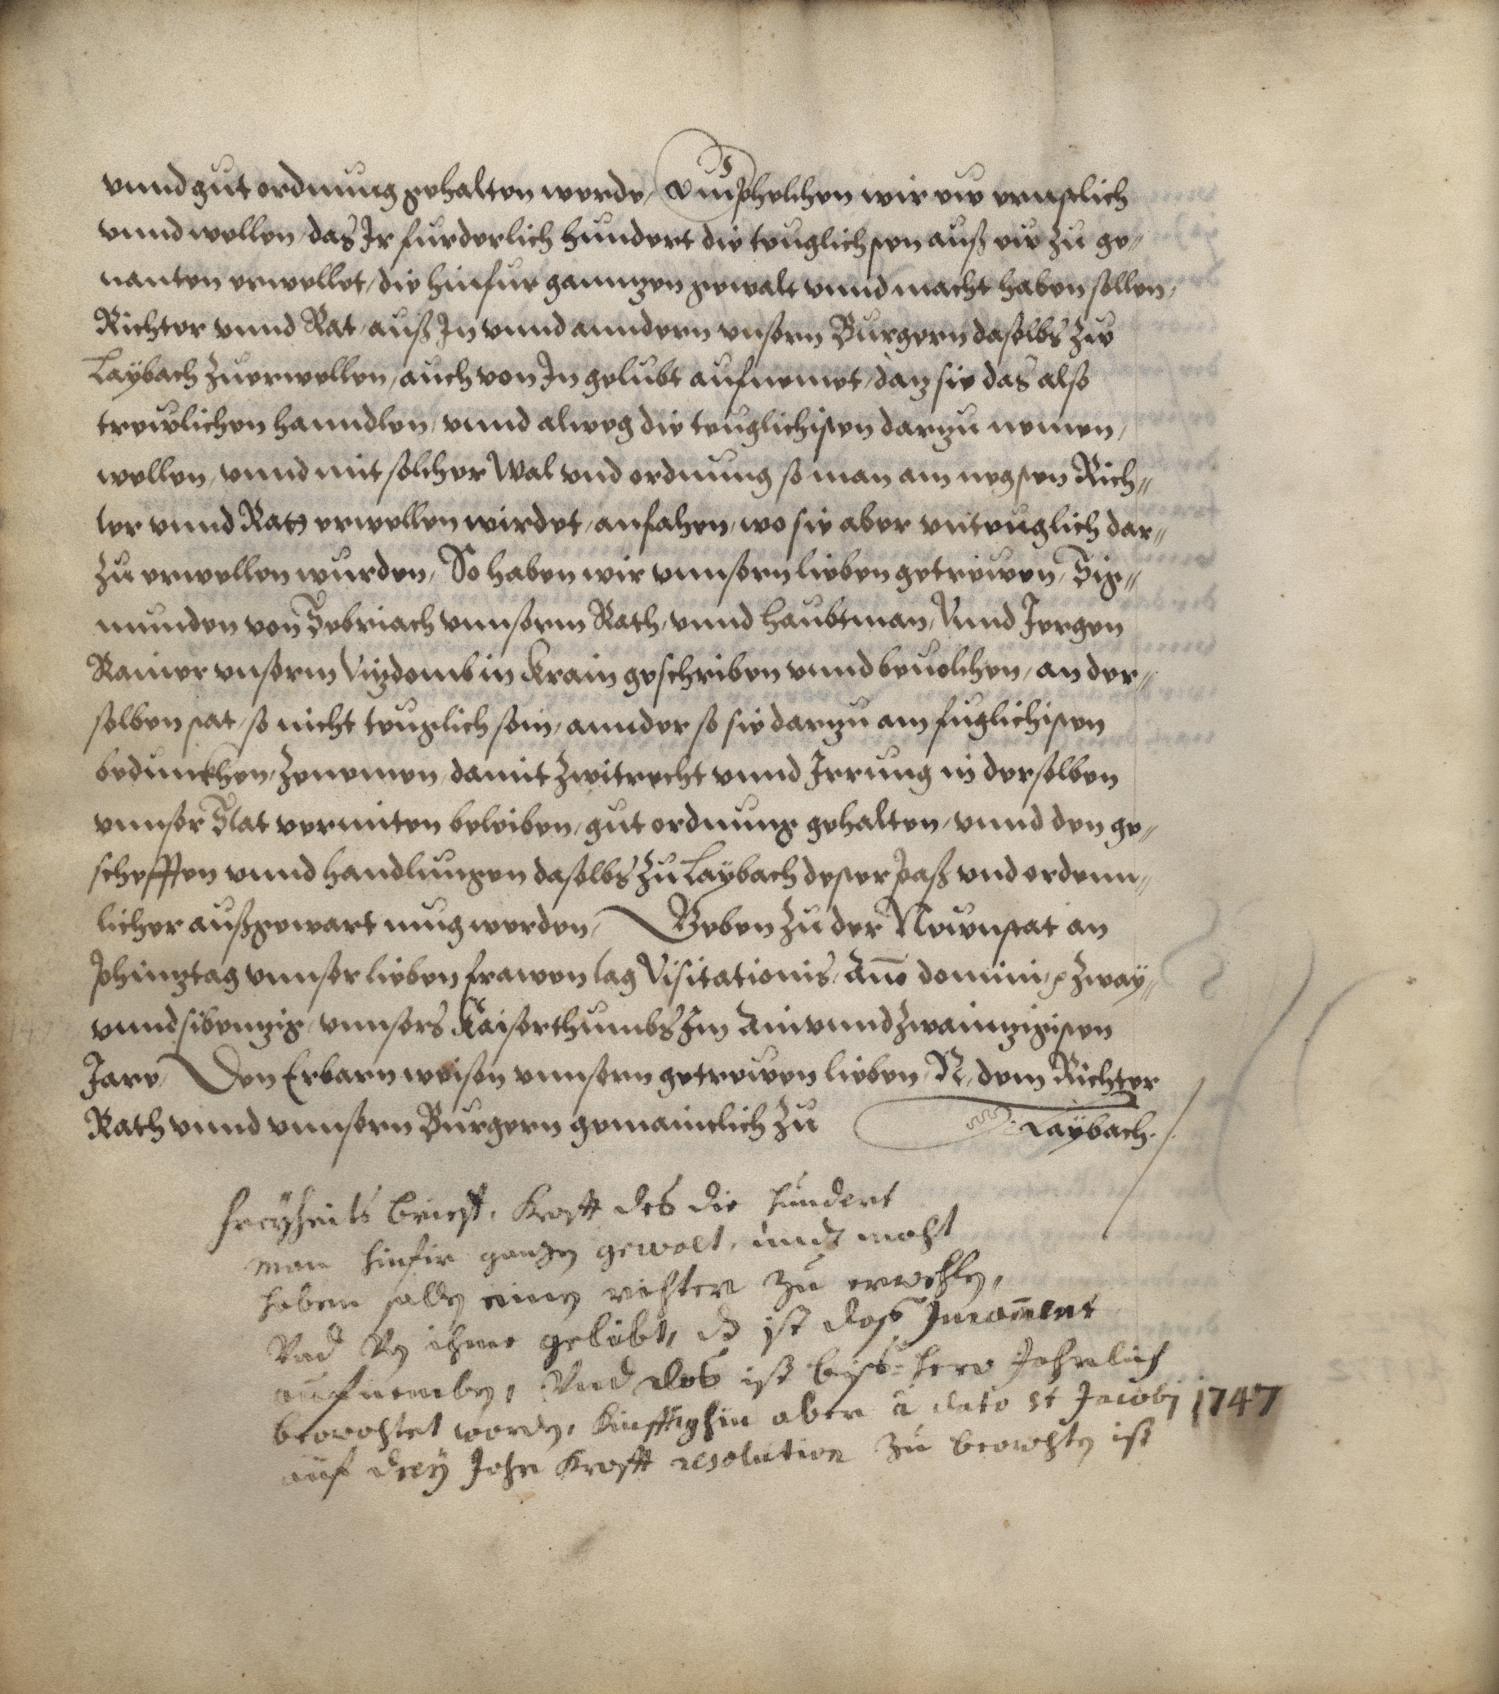 vnnd gut ordnung gehalten werde, Emphelhen wir ew ernnstlich
vnnd wellen, das Ir furderlich hundert die teuglichsten auß ew zu ge-
nanten erwellet, die hinfur ganntzen gewalt vnnd macht haben sollen,
Richter vnnd Rat, auß In vnnd anndern vnsern Burgern daselbs zu
Laÿbach zuerwellen, auch von In gelubt aufnemet, daz sie das also
trewlichen hanndlen, vnnd alweg die teuglichisten darzu nemen,
wellen, vnnd mit solcher Wal vnd ordnung so man am negsten Rich-
ter vnnd Ratt erwellen wirdet, anfahen, wo sie aber vnteuglich dar-
zu erwellen wurden, So haben wir vnnserm lieben getrewen, Sig-
munden von Sebriach vnnserm Rath, vnnd haubtman, Vnnd Jorgen
Rainer vnserm Vitzdomb in Krain geschriben vnnd beuolhen, an der-
selben stat, so nicht teuglich sein, annder so sie darzu am fuglichisten
bedunckhen, zenemen, damit zwitrecht vnnd Irrung in derselben
vnnser Stat vermiten beleiben, gut ordnung gehalten, vnnd den ge-
schefften vnnd handlungen daselbs zu Laÿbach dester paß vnd ordenn-
licher außgewart mug werden, Geben zu der Newnstat an
Phinztag vnnser lieben frawen tag Visitationis, Anno domini, zwaÿ-
vnnd sibenzig, vnnsers Kaiserthumbs Im Ainvnndzwainzigisten
Jare, Den Erbarn weisen vnnsern getrewen lieben, N. dem Richter
Rath vnnd vnnsern Burgern gemainclich zu Laÿbach.
freÿheits brieff, Krafft des die hundert
man hinfir ganzen gewalt, und macht
haben sollen einen richter zu erwehlen,
Vnd von ihme gelübt, dz ist das Jurament
aufnemben, Vnd des ist biss-hero Jahrlich
beobachtet worden, Kinfftighin aber â dato St Jacobj 1747
auf dreÿ Jahr Krafft resolution zu beobachten ist